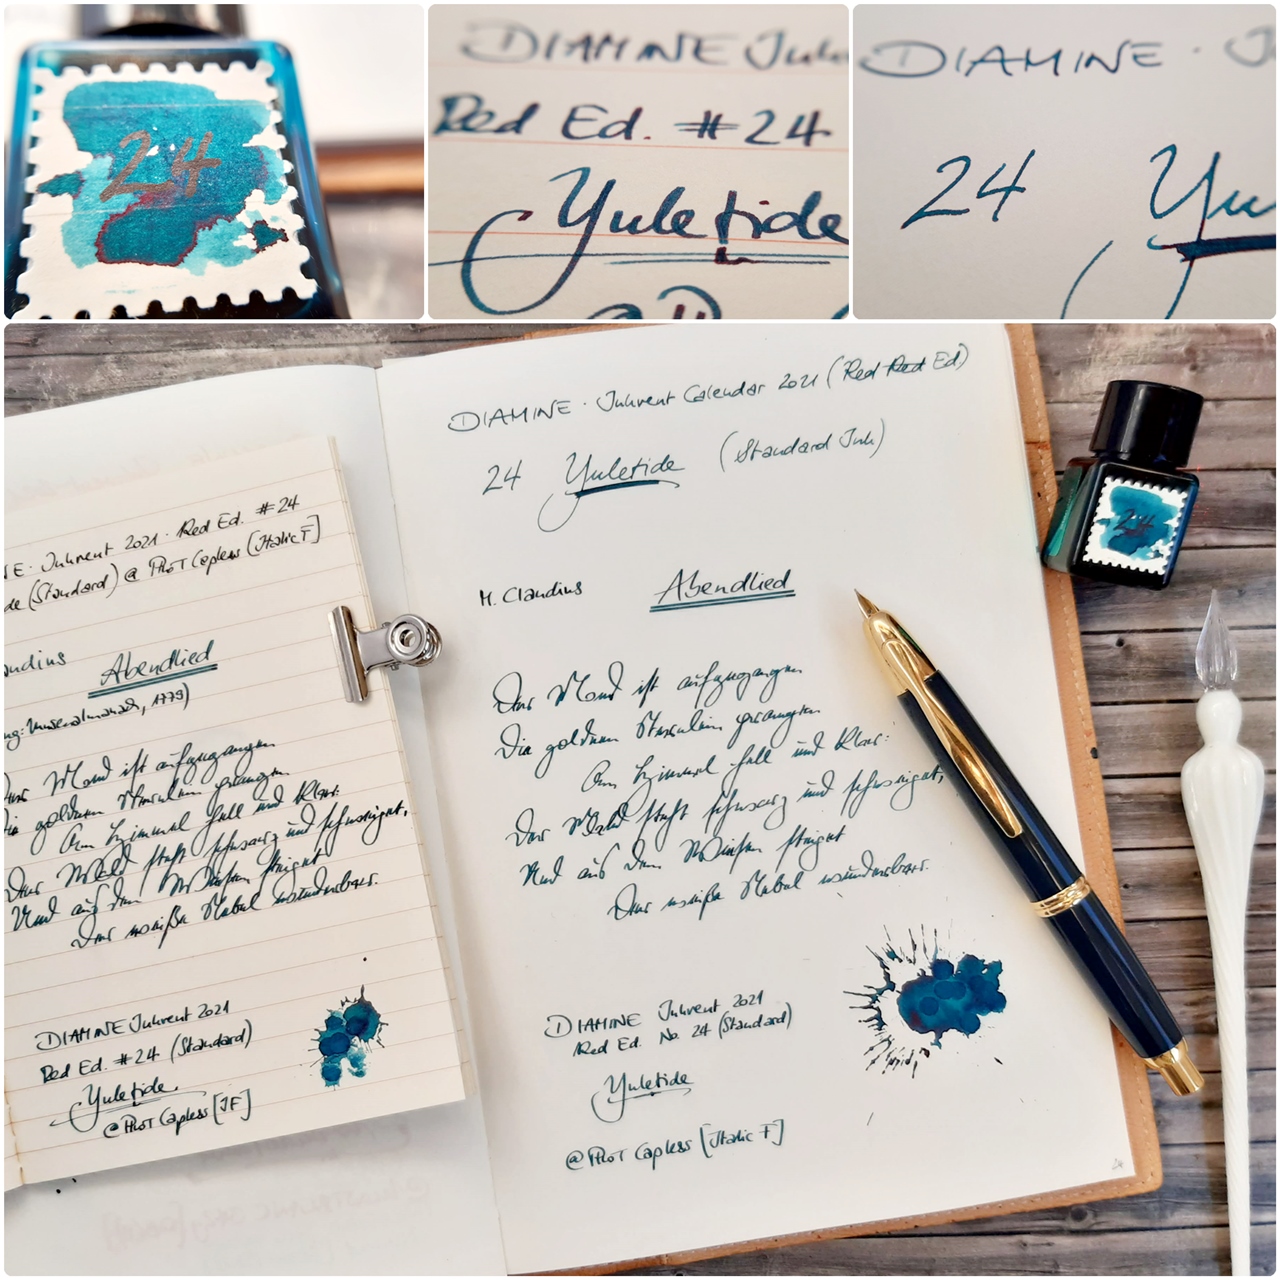 24
DIAMINE Inkv
Red Ed. #24
Yuletide
DIAMINE · I
24 Yu
NE · Inkvent 2021 · Red Ed. #24
de (Standard) @ PILOT Capless [Italic F]
audius Abendlied
ng: Musenalmanach, 1779)
Der Mond ist aufgegangen
Die goldnen Sternlein prangen
Am Himmel hell und klar:
Der Wald steht schwarz und schweiget,
Und aus den Wiesen steiget
Der weiße Nebel wunderbar.
DIAMINE Inkvent 2021
Red Ed. #24 (Standard)
Yuletide.
@ PILOT Capless [IF]
DIAMINE · Inkvent Calendar 2021 (Red Red Ed)
24 Yuletide (Standard Ink)
M. Claudius Abendlied
Der Mond ist aufgegangen
Die goldnen Sternlein prangen
Am Himmel hell und klar:
Der Wald steht schwarz und schweiget,
Und aus den Wiesen steiget
Der weiße Nebel wunderbar.
DIAMINE Inkvent 2021
Red Ed. No. 24 (Standard)
Yuletide
@ PILOT Capless [Italic F]
24